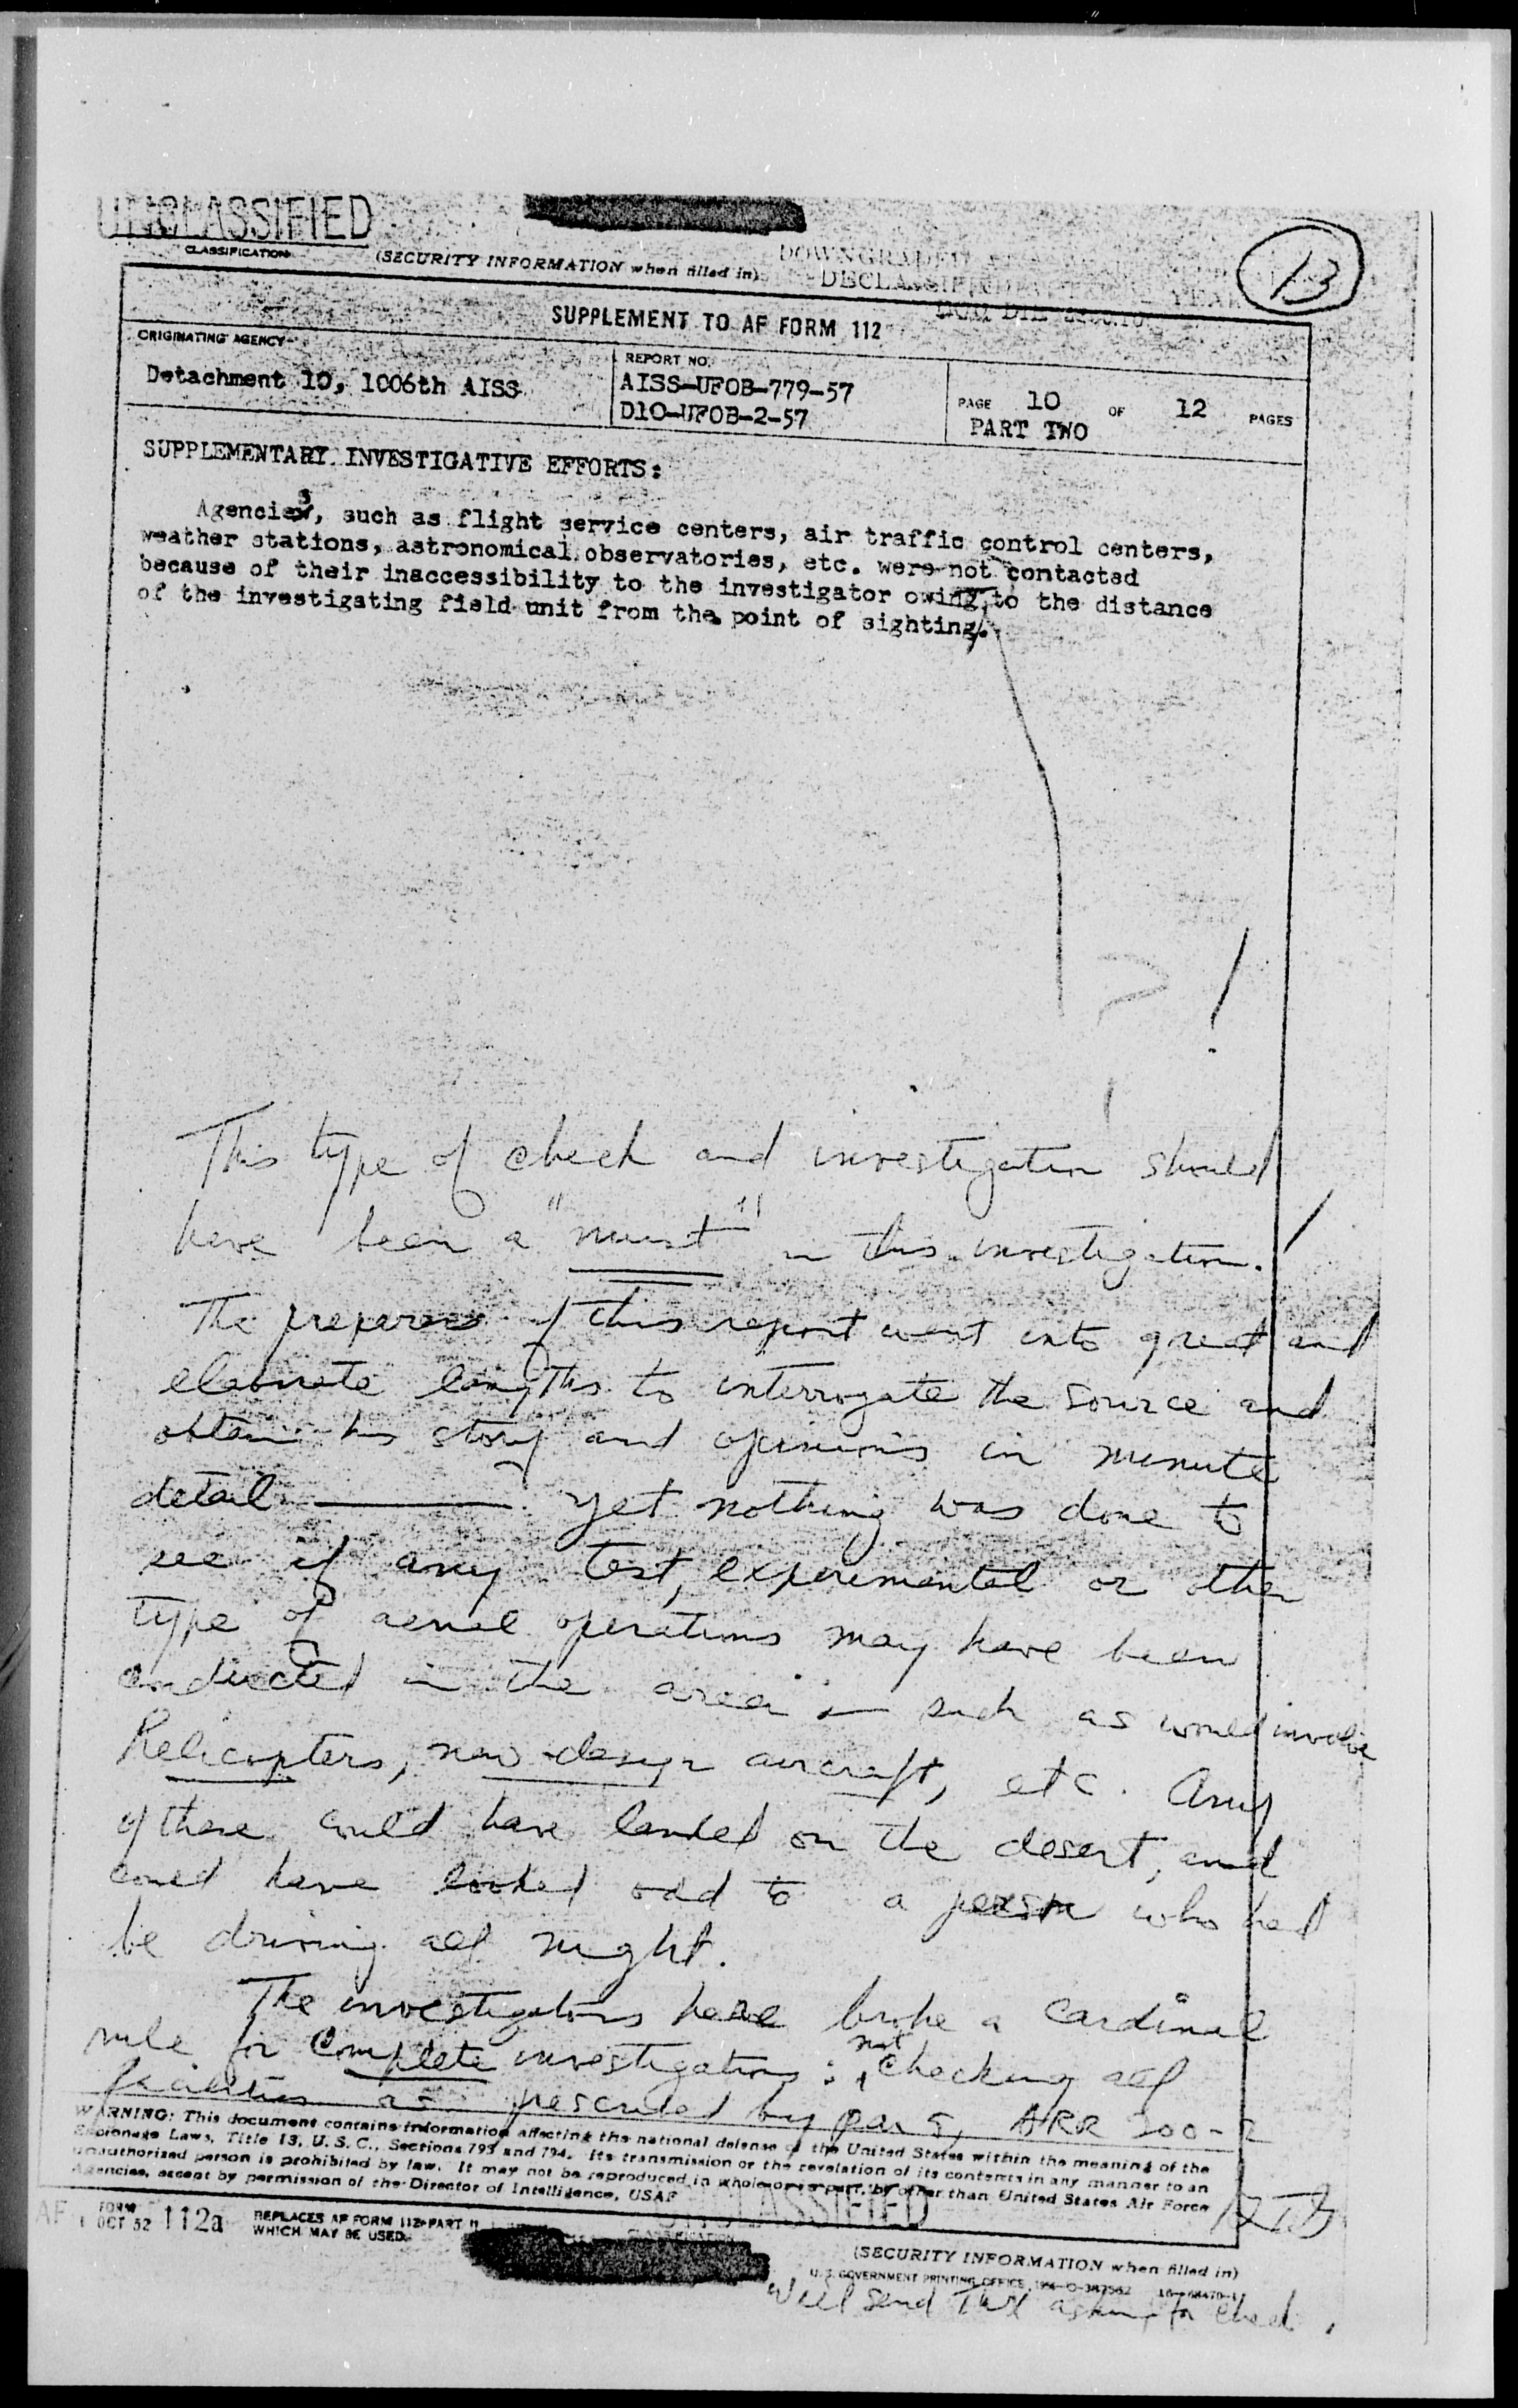 UNCLASSIFIED
CLASSIFICATION
(SECURITY INFORMATION when filled in)
DOWNGRADED
13
SUPPLEMENT TO AF FORM 112
ORIGINATING AGENCY
Detachment 10, 1006th AISS
REPORT NO.
AISS-UFOB-779-57
D10-UFOB-2-57
PAGE 10 OF 12 PAGES
PART TWO
SUPPLEMENTARY INVESTIGATIVE EFFORTS:
Agencies, such as flight service centers, air traffic control centers,
weather stations, astronomical observatories, etc. were not contacted
because of their inaccessibility to the investigator owing to the distance
of the investigating field unit from the point of sighting.
?!
This type of check and investigation should
have been a "must" in this investigation.!
The preparers of this report went into great and
elaborate lengths to interrogate the source and
obtain his story and opinions in minute
detail — yet nothing was done to
see if any test, experimental or other
type of aerial operations may have been
conducted in the area — such as would involve
helicopters, new design aircraft, etc. Any
of these could have landed on the desert, and
could have looked odd to a person who had
be driving all night.
The investigators have broke a cardinal
rule for complete investigations: not checking all
facilities as prescribed by par 5, AFR 200-2
WARNING: This document contains information affecting the national defense of the United States within the meaning of the
Espionage Laws, Title 18, U. S. C., Sections 793 and 794. Its transmission or the revelation of its contents in any manner to an
unauthorized person is prohibited by law. It may not be reproduced in whole or in part, by other than United States Air Force
Agencies, except by permission of the Director of Intelligence, USAF
AF FORM 1 OCT 52 112a
REPLACES AF FORM 112-PART II
WHICH MAY BE USED.
UNCLASSIFIED
CLASSIFICATION
(SECURITY INFORMATION when filled in)
U. S. GOVERNMENT PRINTING OFFICE
Will send TWX asking for check.